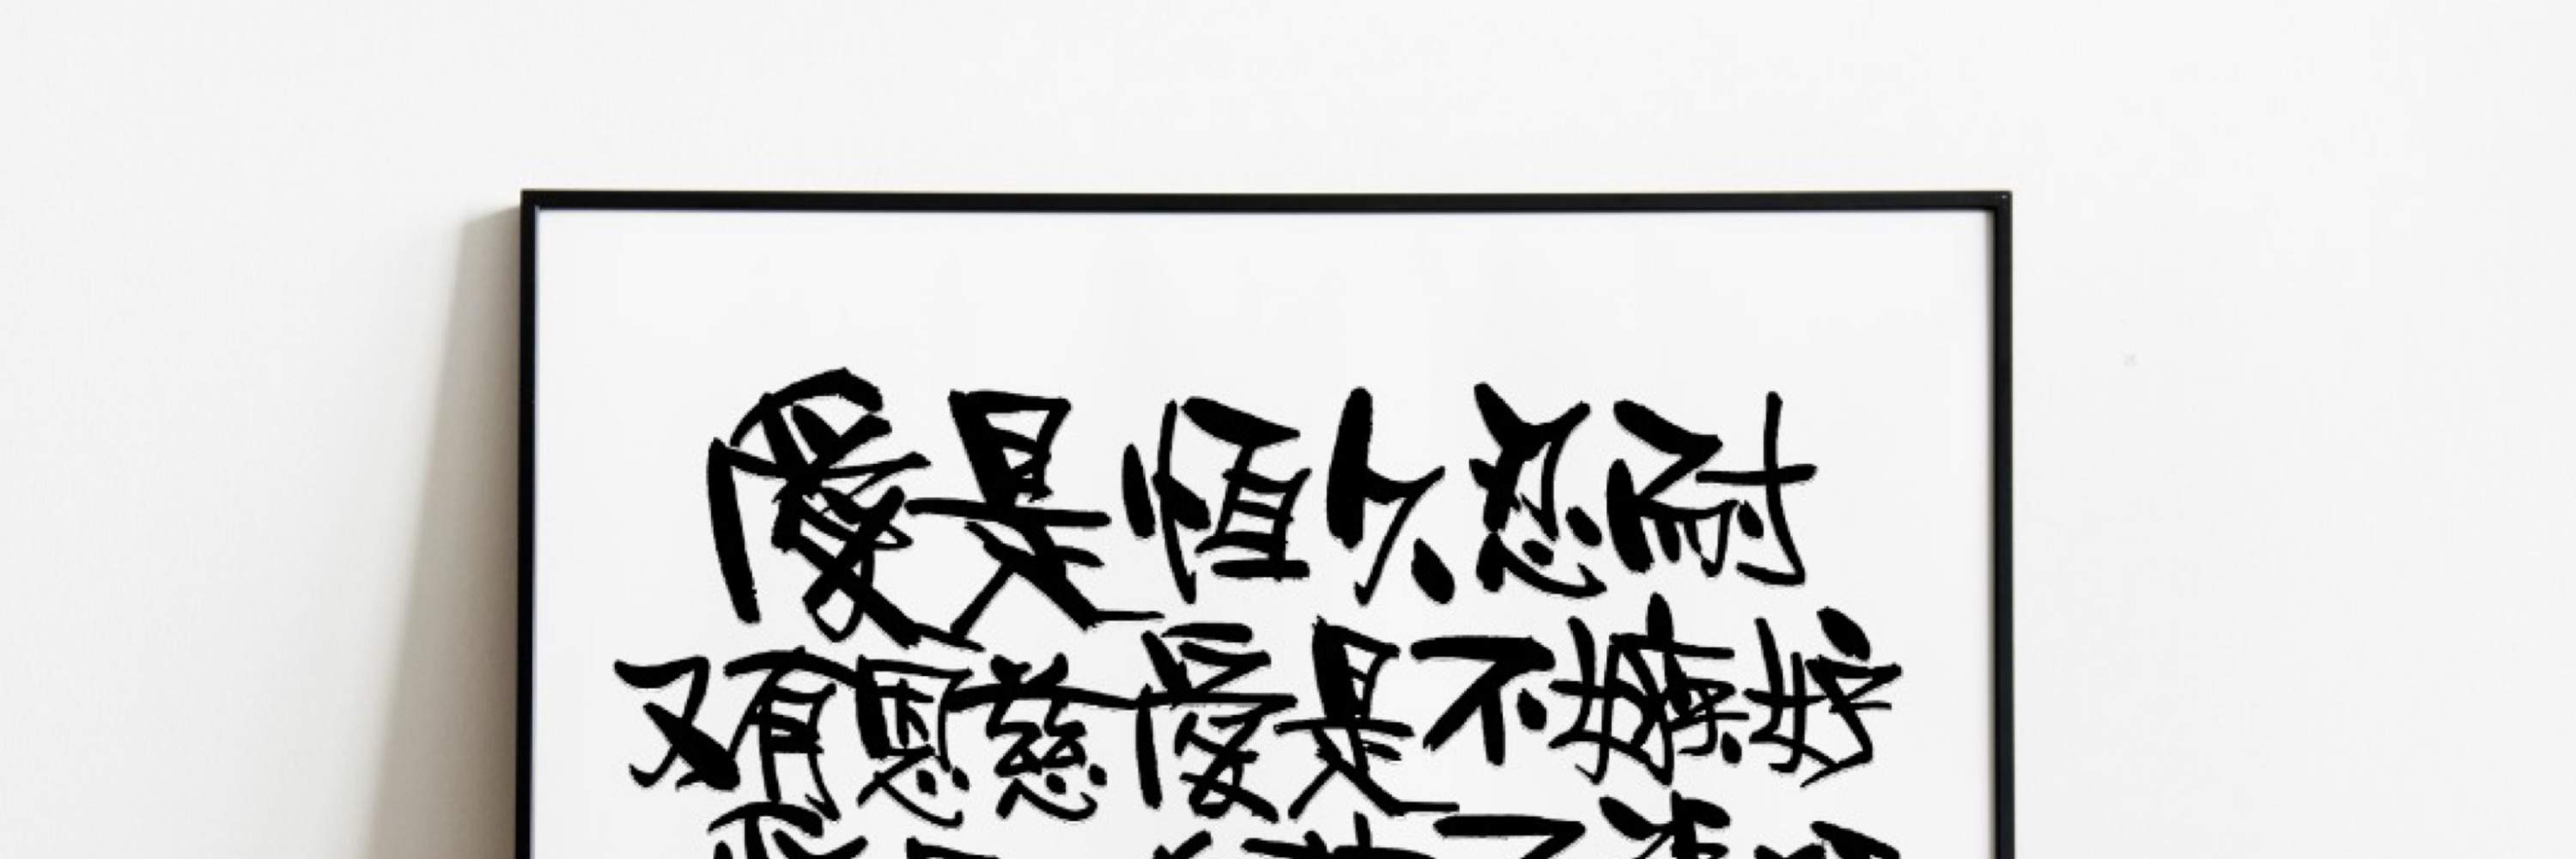 愛是恒久忍耐
又有恩慈愛是不嫉妒